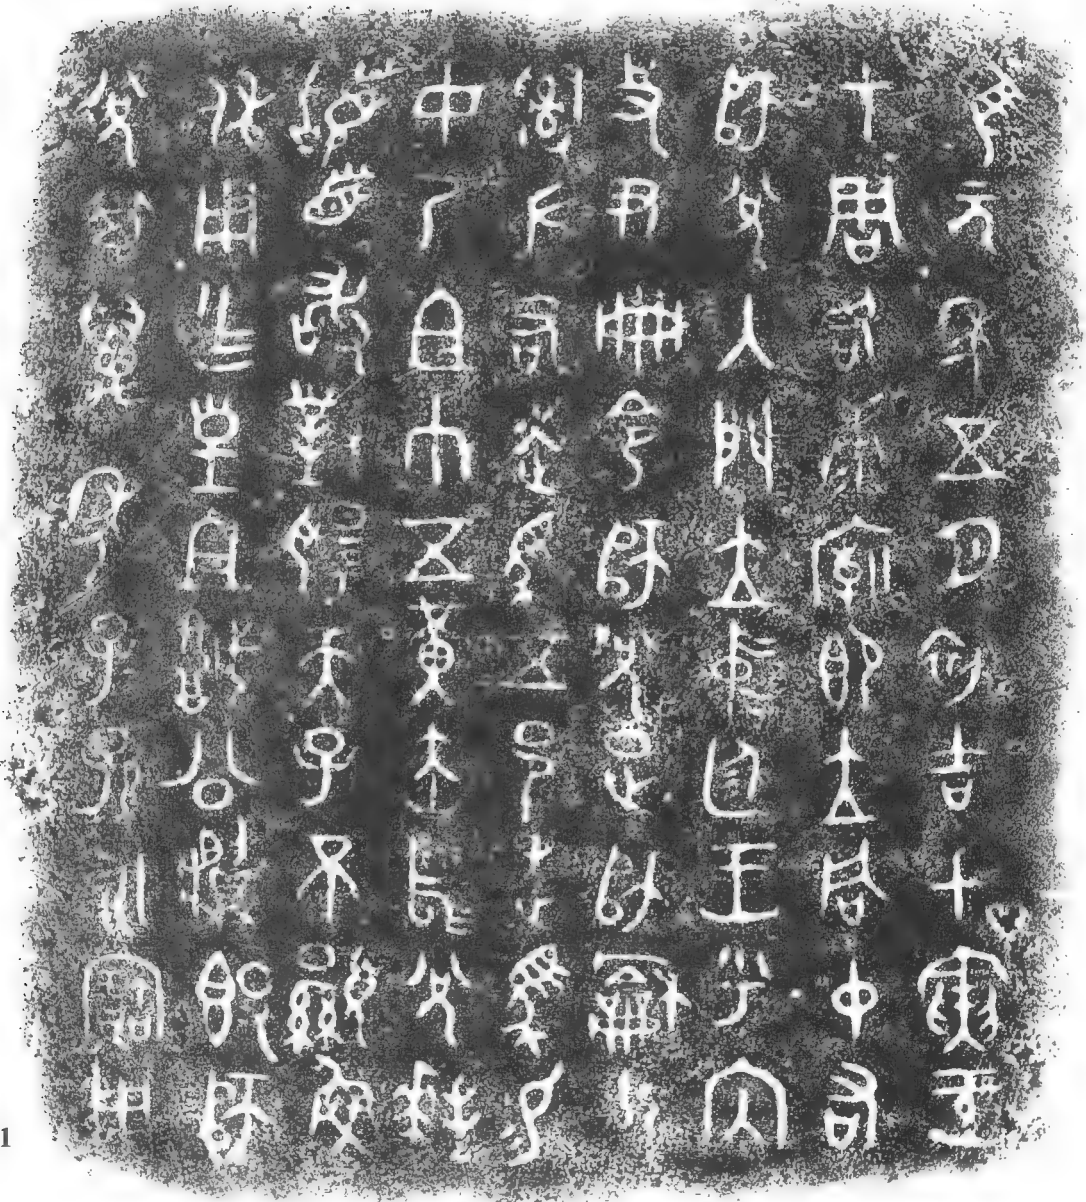 隹元年五月初吉甲寅王
才周各康廟即立同中右
師兌入門立中廷王乎內
史尹冊令師兌疋師龢父
𤔲左右走馬五邑走馬易
女乃且巾五黃赤舄兌拜
𩒨首敢對揚天子不顯魯
休用乍皇且城公𩰬簋師
兌其萬年子子孫孫永寶用
1